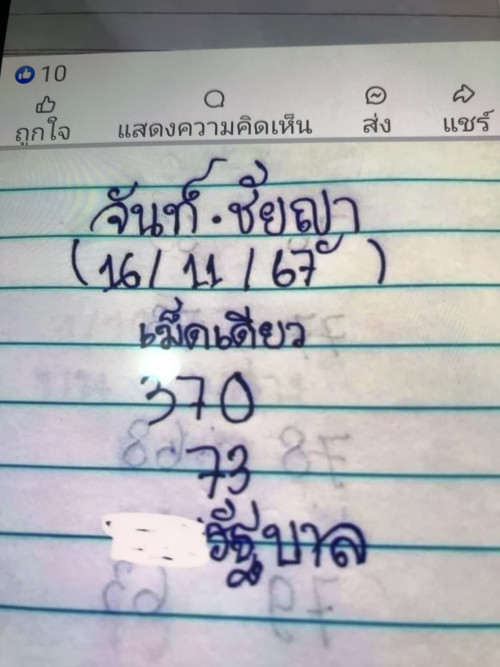 10
ถูกใจ แสดงความคิดเห็น ส่ง แชร์
จันท์.ชัยญา
(16/11/67)
เม็ดเดียว
370
73
รัฐบาล